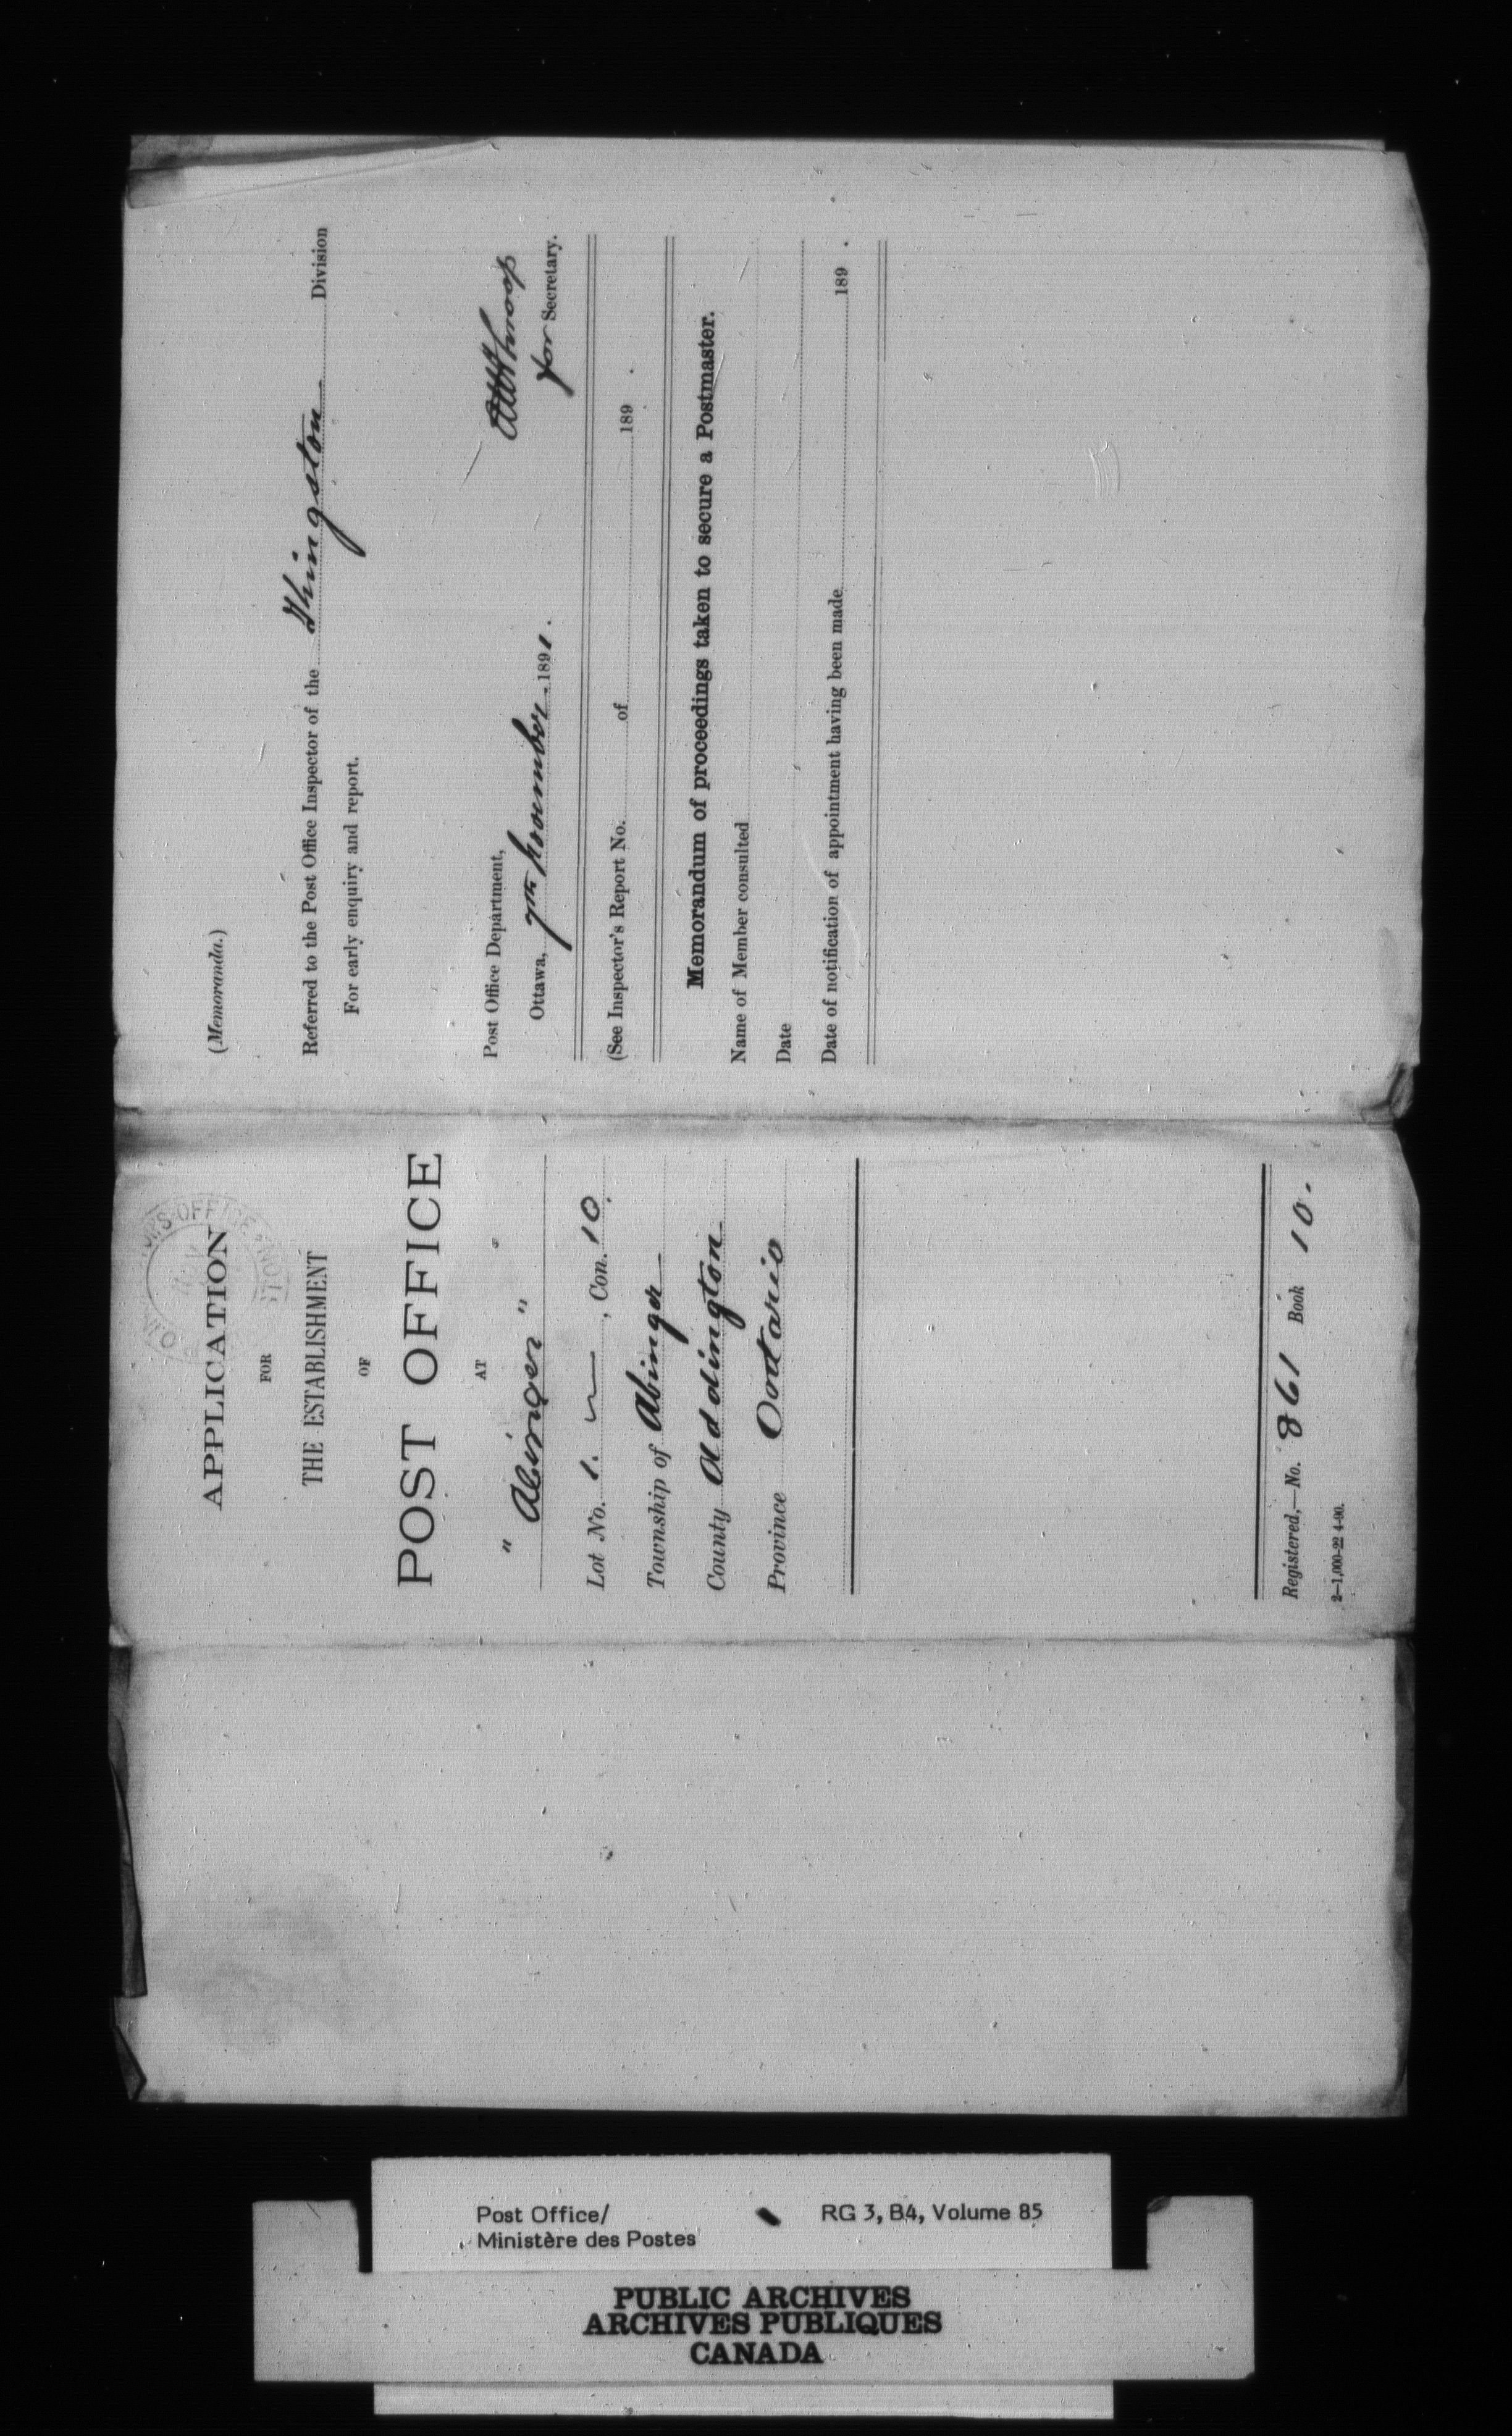 APPLICATION
FOR
THE ESTABLISHMENT
OF
POST OFFICE
AT
" Abinger "
Lot No. 1. , Con. 10.
Township of Abinger
County Addington
Province Ontario
Registered,—No. 861 Book 10.
2—1,000-22 4-90.
(Memoranda.)
Referred to the Post Office Inspector of the Kingston Division
For early enquiry and report.
for Secretary.
Post Office Department,
Ottawa, 7th November. 1891.
(See Inspector's Report No. of 189 .
Memorandum of proceedings taken to secure a Postmaster.
Name of Member consulted
Date
Date of notification of appointment having been made 189 .
Post Office/
Ministère des Postes
RG 3, B4, Volume 85
PUBLIC ARCHIVES
ARCHIVES PUBLIQUES
CANADA